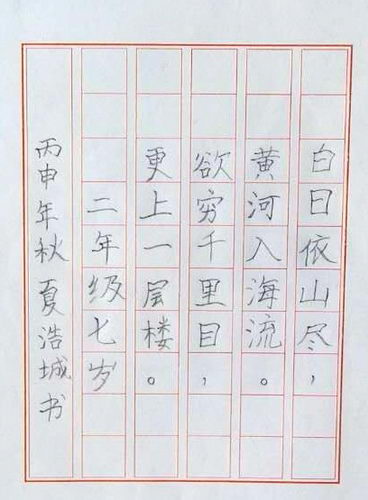 白日依山尽，
黄河入海流。
欲穷千里目，
更上一层楼。
二年级七岁
丙申年秋夏浩城书